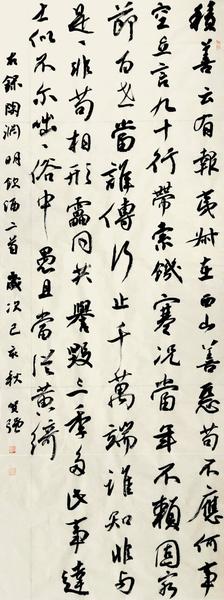 積善云有報夷叔在西山善惡苟不應何事
空立言九十行帶索饑寒況當年不賴固窮
節百世當誰傳行止千萬端誰知非與
是〻非苟相形雷同共譽毀三季多此事達
士似不爾咄〻俗中愚且當從黃綺
右錄陶淵明飲酒二首 歲次己亥秋